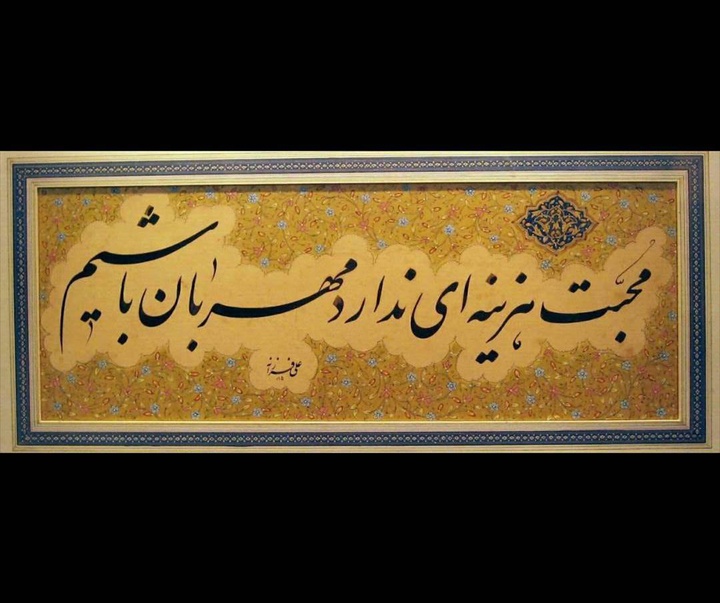 محبّت هزینه ای ندارد مهربان باشیم
علی فرزانه